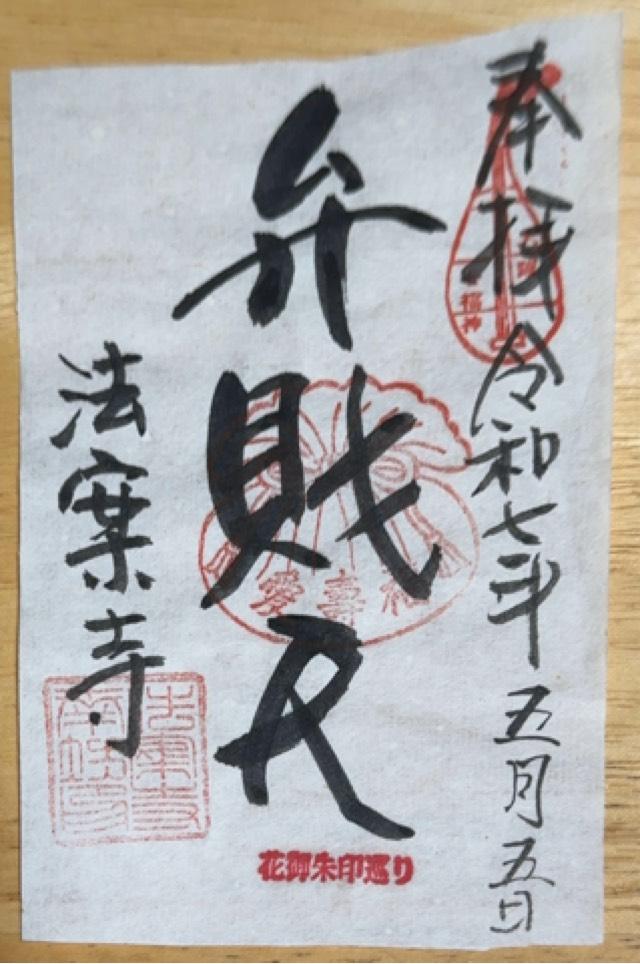 奉拝
令和七年五月五日
弁財天
福神
愛寿福
法案寺
花御朱印巡り